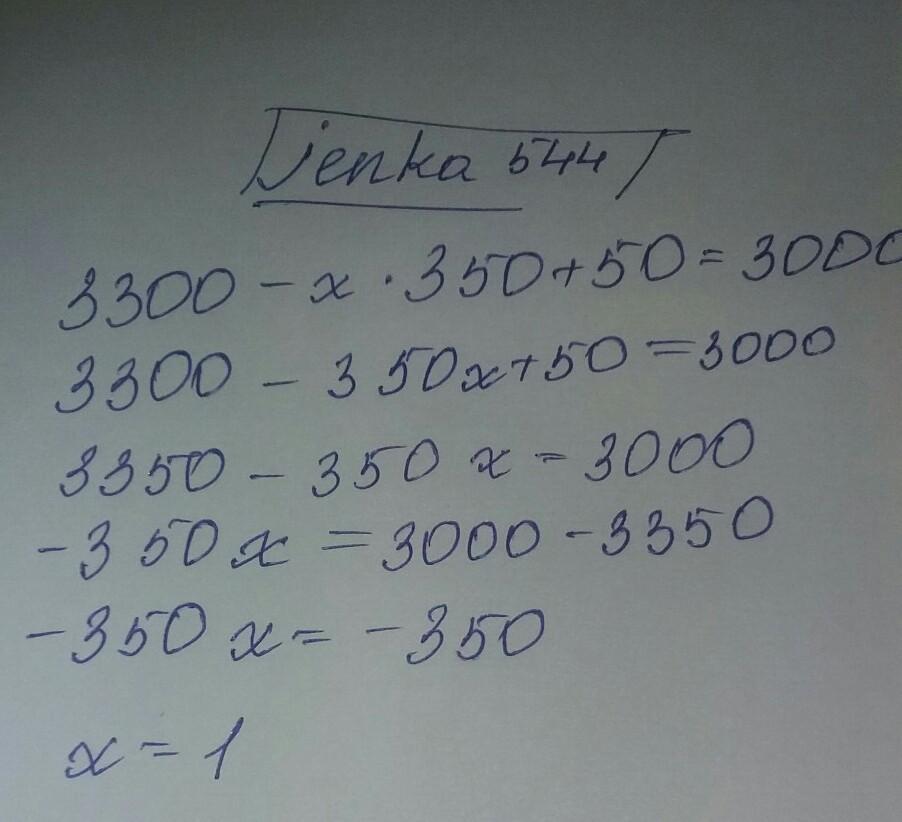 jenka 544
3300 - x · 350 + 50 = 3000
3300 - 350x + 50 = 3000
3350 - 350 x = 3000
-350 x = 3000 - 3350
-350 x = -350
x = 1